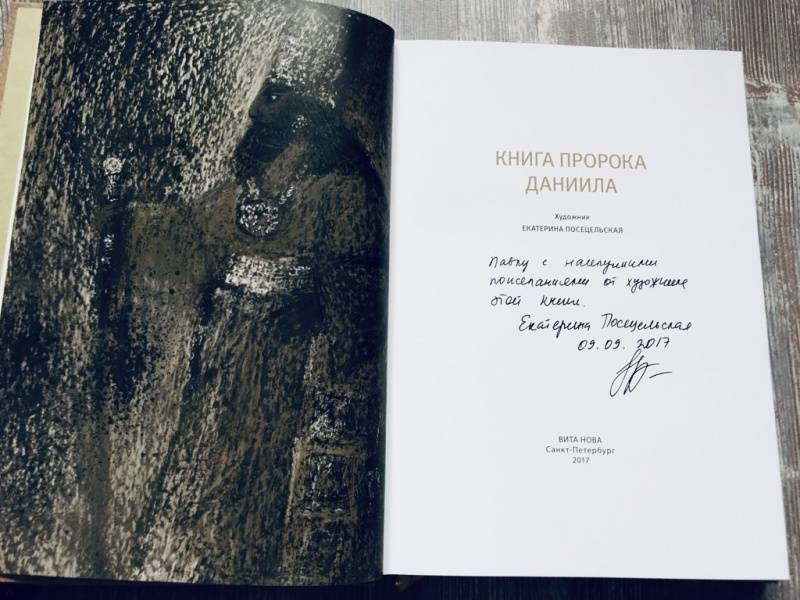 КНИГА ПРОРОКА
ДАНИИЛА
Художник
ЕКАТЕРИНА ПОСЕЦЕЛЬСКАЯ
Павлу с наилучшими
пожеланиями от художника
этой книги.
Екатерина Посецельская
09.09.2017
ВИТА НОВА
Санкт-Петербург
2017